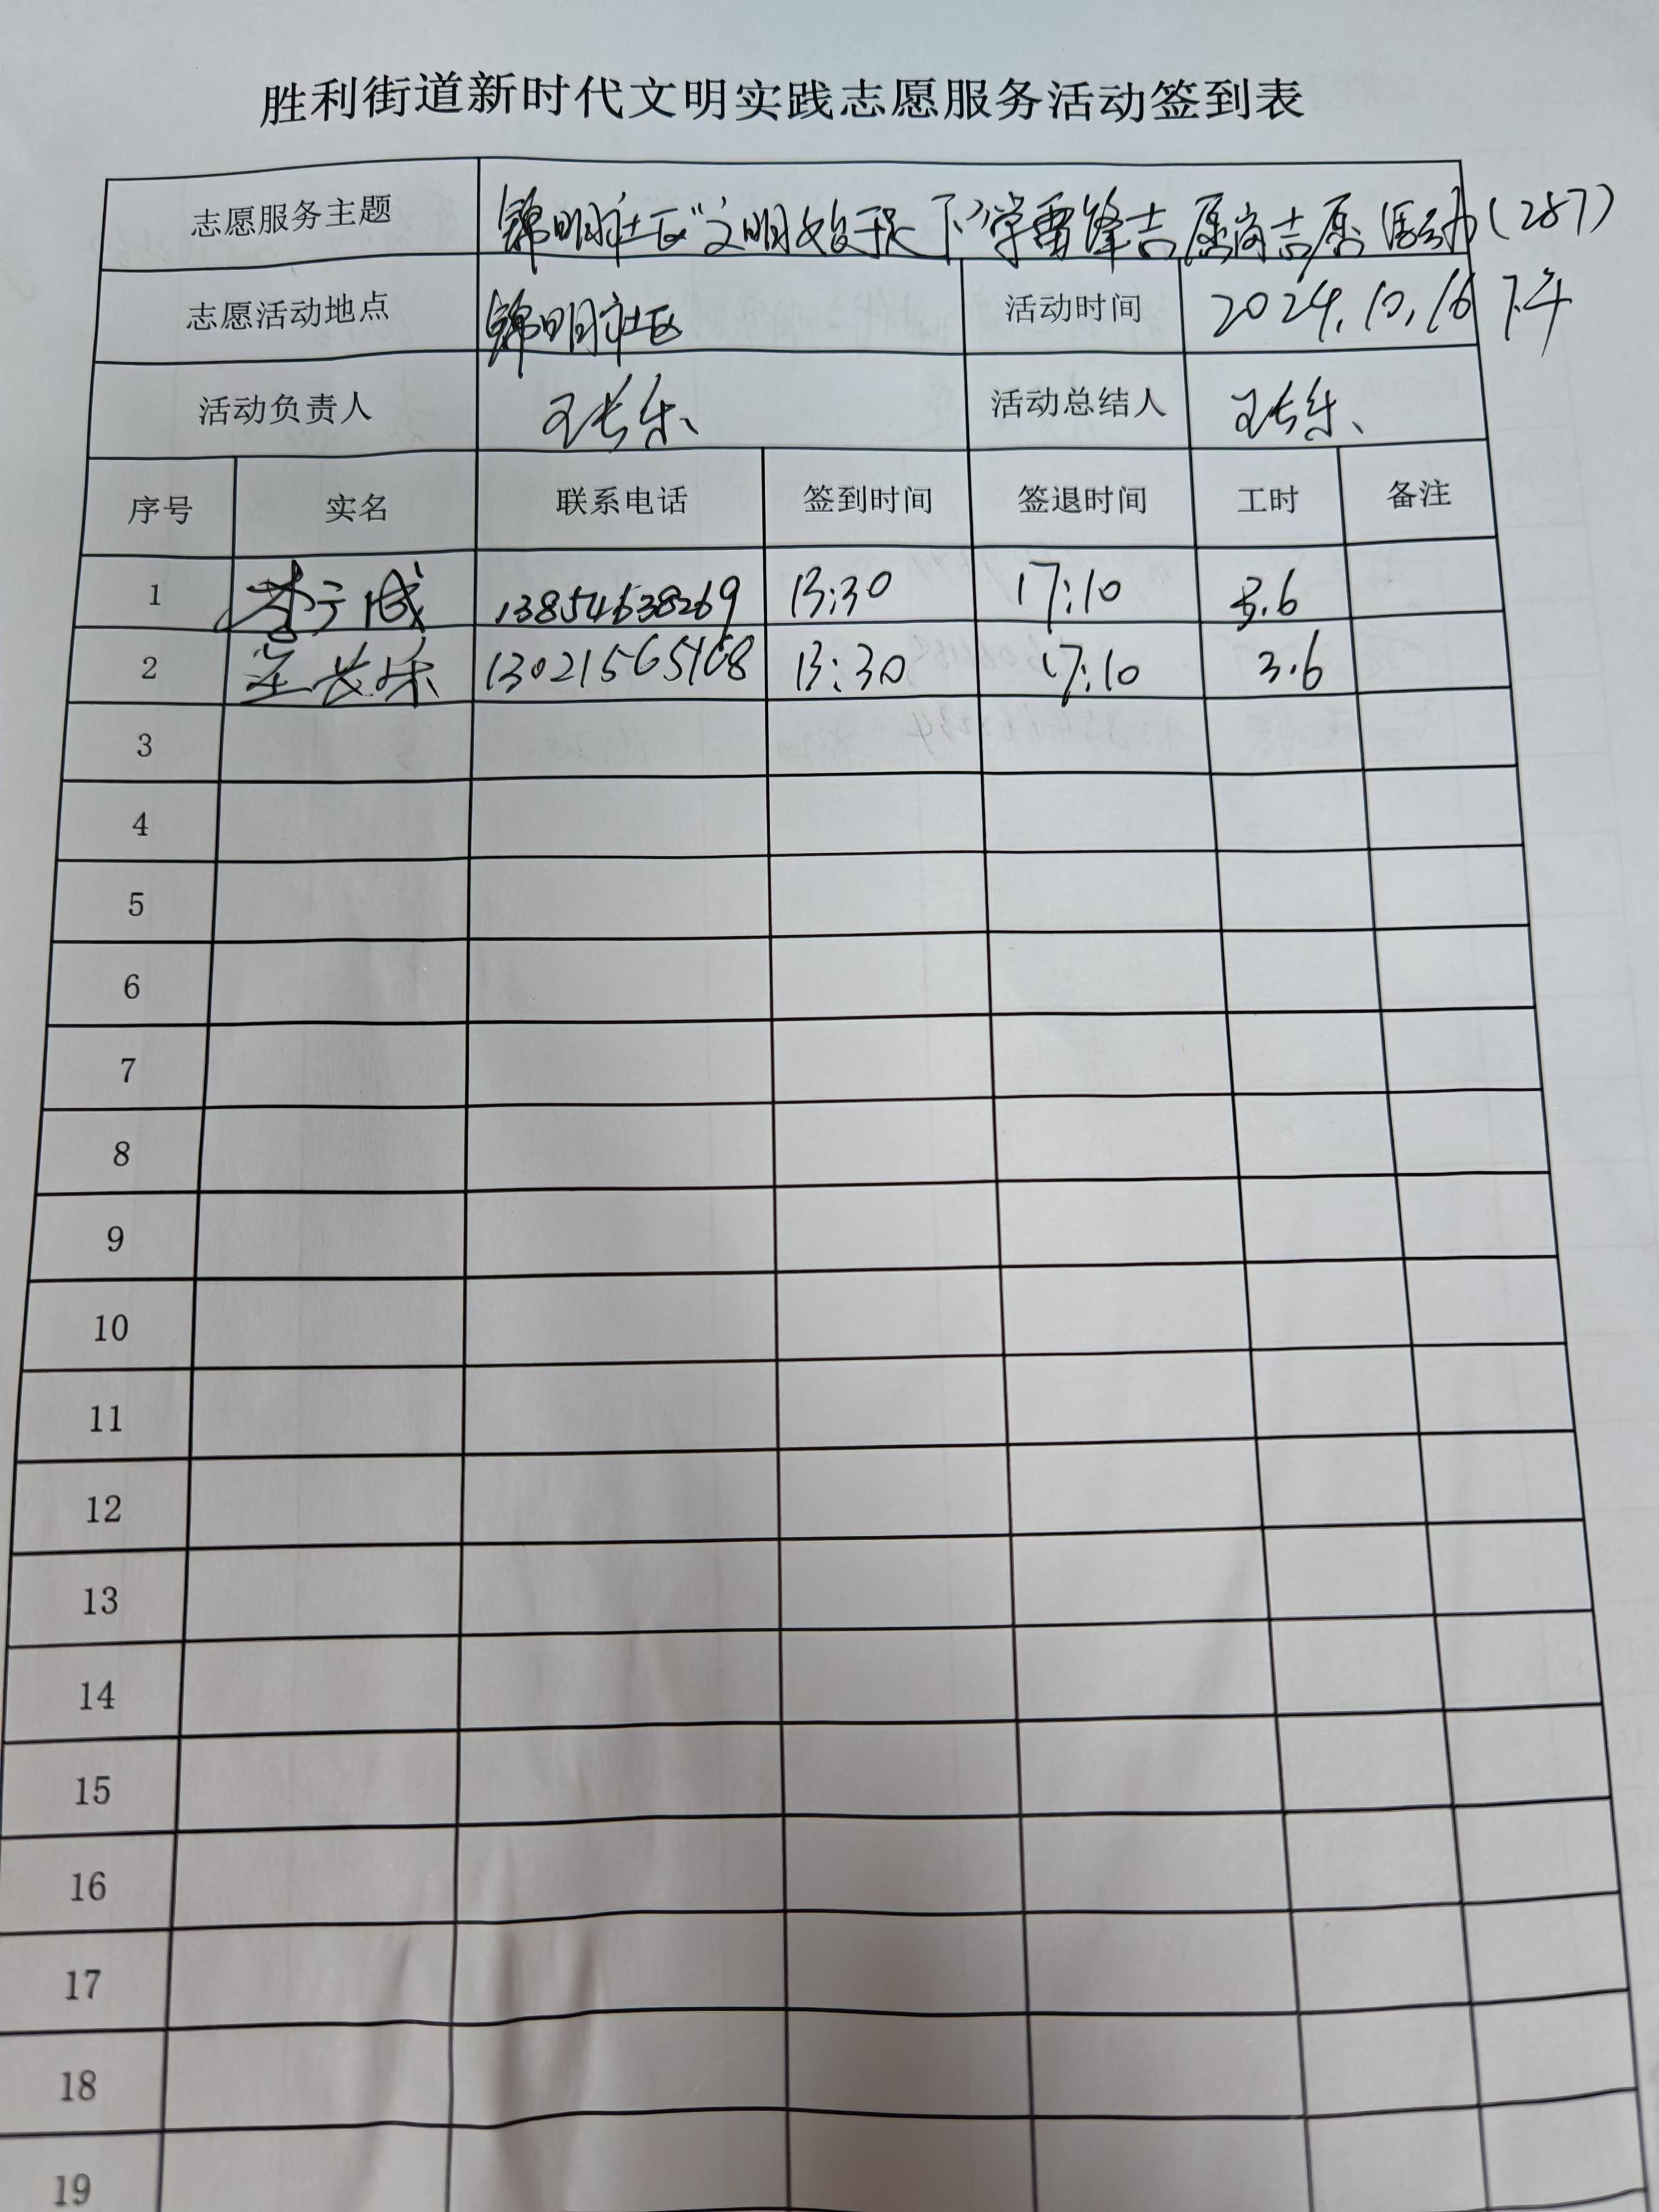 胜利街道新时代文明实践志愿服务活动签到表
志愿服务主题 锦明社区“文明始于足下”学雷锋志愿岗志愿活动(287)
志愿活动地点 锦明社区 活动时间 2024.10.16下午
活动负责人 王长乐 活动总结人 王长乐
序号 实名 联系电话 签到时间 签退时间 工时 备注
1 13854638269 13:30 17:10 3.6
2 王长乐 13021565168 13:30 17:10 3.6
3
4
5
6
7
8
9
10
11
12
13
14
15
16
17
18
19